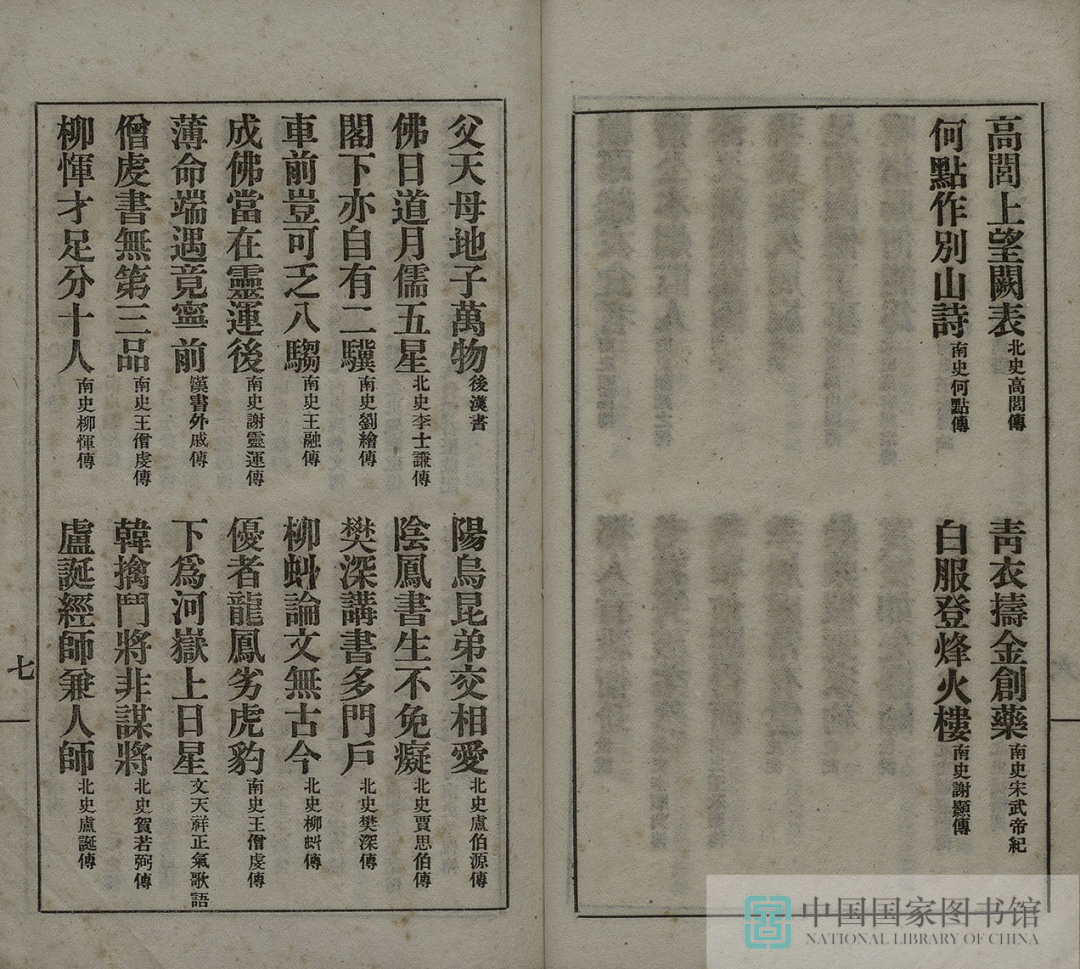 高閭上望闕表北史高閭傳
青衣擣金創藥南史宋武帝紀
何點作別山詩南史何點傳
白服登烽火樓南史謝顥傳
父天母地子萬物後漢書
陽烏昆弟交相愛北史盧伯源傳
佛日道月儒五星北史李士謙傳
陰鳳書生不免癡北史賈思伯傳
閣下亦自有二驥南史劉繪傳
樊深講書多門戶北史樊深傳
車前豈可乏八騶南史王融傳
柳虯論文無古今北史柳虯傳
成佛當在靈運後南史謝靈運傳
優者龍鳳劣虎豹南史王僧虔傳
薄命端遇竟寧前漢書外戚傳
下為河嶽上日星文天祥正氣歌語
僧虔書無第三品南史王僧虔傳
韓擒鬥將非謀將北史賀若弼傳
柳惲才足分十人南史柳惲傳
盧誕經師兼人師北史盧誕傳
七
中国国家图书馆
NATIONAL LIBRARY OF CHINA